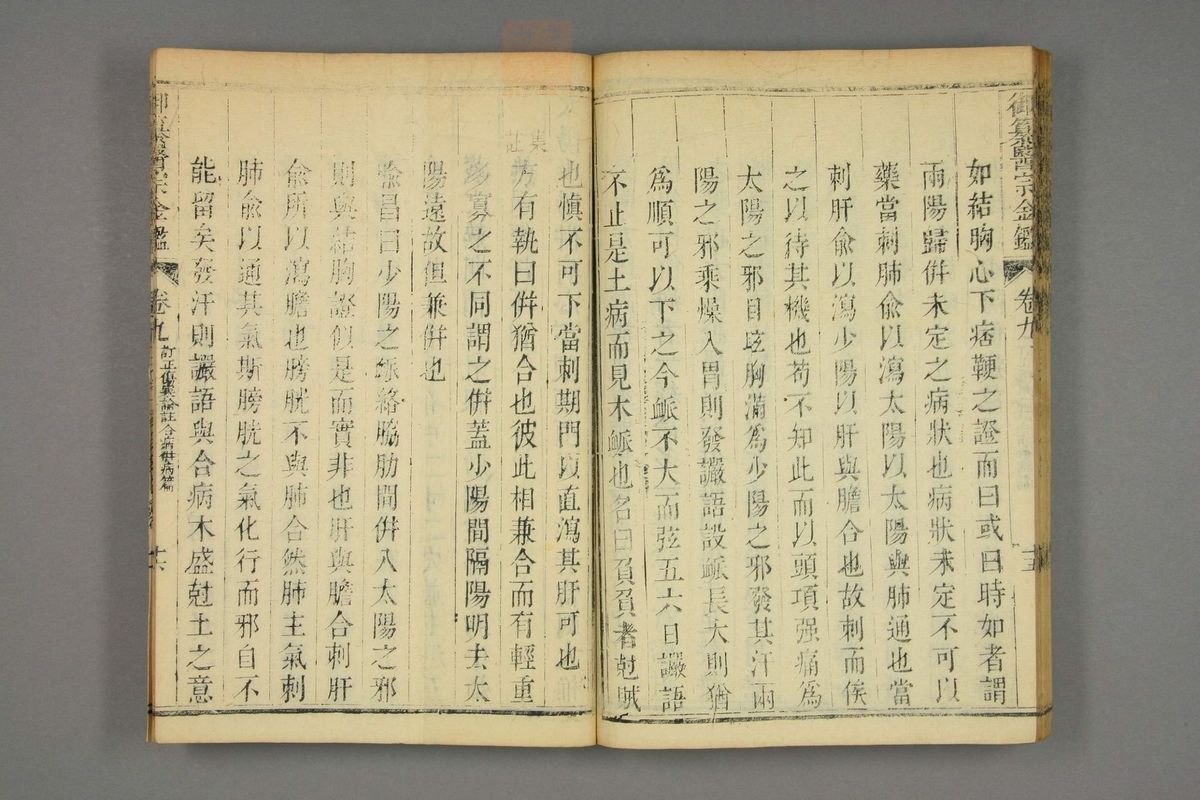 御纂醫宗金鑑 卷九 十五
如結胸心下痞鞕之證而曰或曰時如者謂
兩陽歸併未定之病狀也病狀未定不可以
藥當刺肺俞以瀉太陽以太陽與肺通也當
刺肝俞以瀉少陽以肝與膽合也故刺而俟
之以待其機也苟不知此而以頭項强痛爲
太陽之邪目眩胸滿爲少陽之邪發其汗兩
陽之邪乘燥入胃則發讝語設脈長大則猶
爲順可以下之今脈不大而弦五六日讝語
不止是土病而見木脈也名曰負負者尅賊
也慎不可下當刺期門以直瀉其肝可也
集註
方有執曰併猶合也彼此相兼合而有輕重
多寡之不同謂之併蓋少陽間隔陽明去太
陽遠故但兼併也
喻昌曰少陽之脈絡脇肋間併入太陽之邪
則與結胸證似是而實非也肝與膽合刺肝
俞所以瀉膽也膀胱不與肺合然肺主氣刺
肺俞以通其氣斯膀胱之氣化行而邪自不
能留矣發汗則讝語與合病木盛尅土之意
御纂醫宗金鑑 卷九 訂正傷寒論註合病併病篇 十六